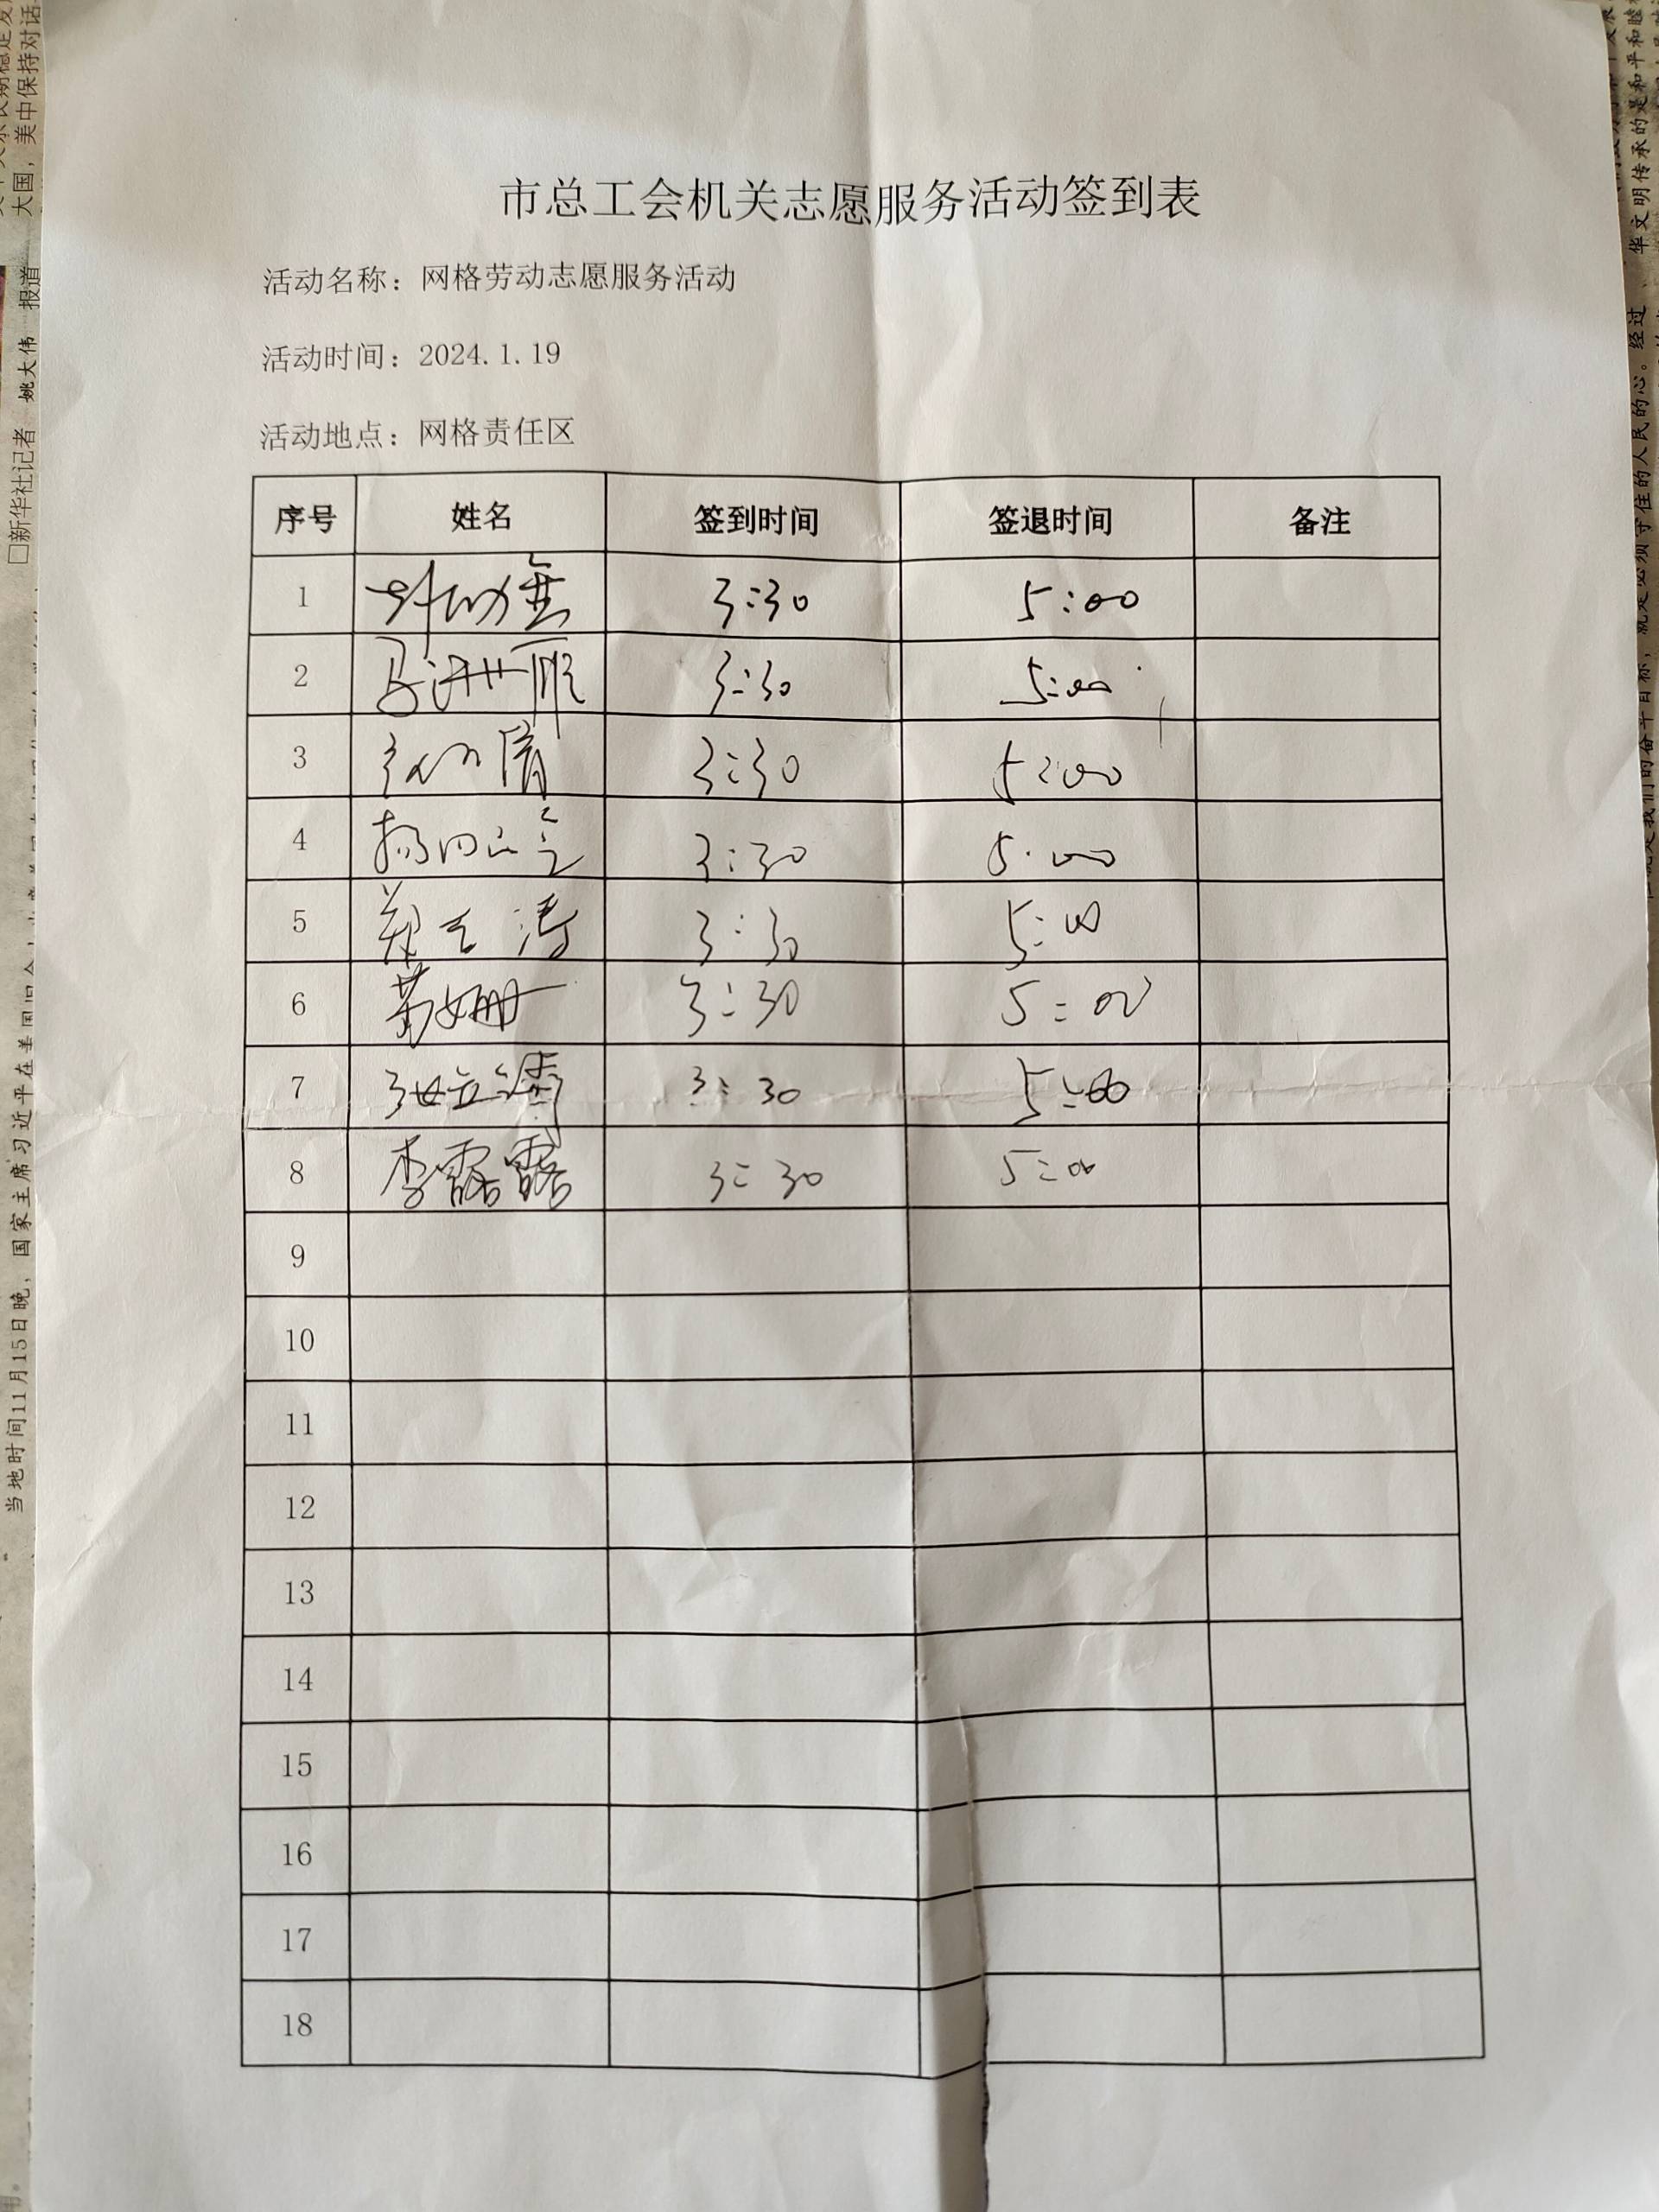 市总工会机关志愿服务活动签到表
活动名称：网格劳动志愿服务活动
活动时间：2024.1.19
活动地点：网格责任区
序号 姓名 签到时间 签退时间 备注
1 3:30 5:00
2 3:30 5:00
3 3:30 5:00
4 3:30 5:00
5 3:30 5:00
6 3:30 5:00
7 3:30 5:00
8 李露露 3:30 5:00
9
10
11
12
13
14
15
16
17
18
大国，美中保持对话
□新华社记者 姚大伟 报道
当地时间11月15日晚，国家主席习近平在美国旧金山
华文明传承的是和平和睦
就是必须守住的人民的心。经过